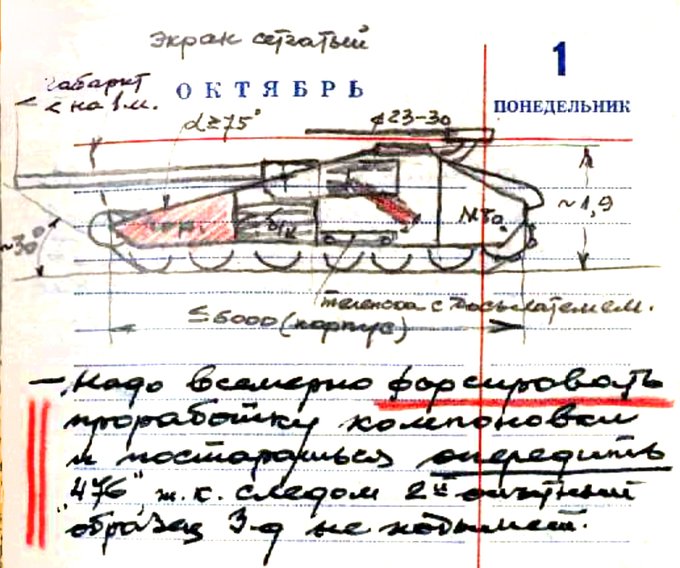 экран сетчатый
габарит
< на 1 м.
ОКТЯБРЬ
1
ПОНЕДЕЛЬНИК
α≥75°
⌀23-30
~1,9
~30°
МТО
тележка с досылателем.
≤6000 (корпус)
— Надо всемерно форсировать
проработку компоновки
и постараться опередить
"476" т.к. следом 2й опытный
образец З-д не подымет.